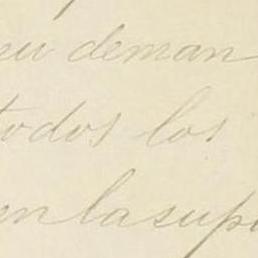 su deman
todos los
en la supe